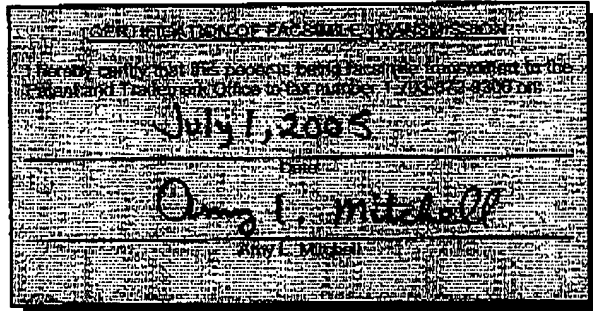 CERTIFICATION OF FACSIMILE TRANSMISSION
I hereby certify that this paper is being facsimile transmitted to the
Patent and Trademark Office to fax number 1-703-872-9306 on:
July 1, 2005
Date
Amy L. Mitchell
Amy L. Mitchell